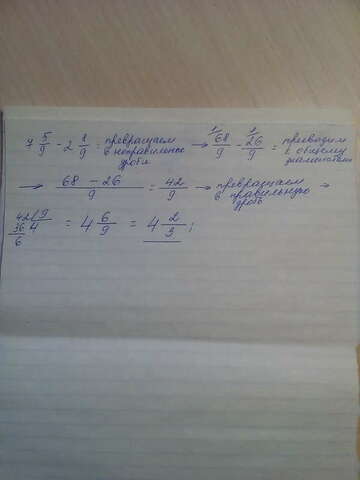 7 5/9 - 2 8/9 = превращаем в неправильную дробь → 68/9 - 26/9 = приводим к общему знаменателю
→ 68 - 26 / 9 = 42/9 → превращаем в правильную дробь →
42 | 9 36 4 6 = 4 6/9 = 4 2/3 ;